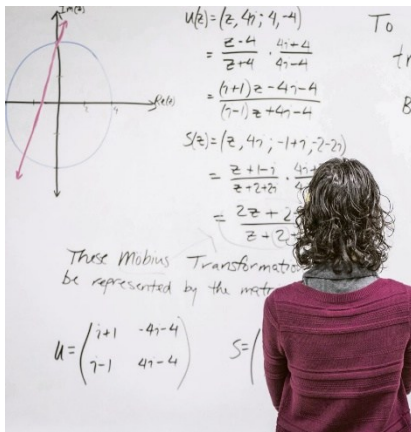 Im(z)
Re(z)
4
U(z) = (z, 4i; 4, -4)
= z-4/z+4 · 4i+4/4i-4
= (i+1)z-4i-4/(i-1)z+4i-4
S(z) = (z, 4i; -1+i, -2-2i)
= z+1-i/z+2+2i · 4i
= 2z+2
z+(2
These Mobius Transformatio
be represented by the matr
U = (i+1 -4i-4
i-1 4i-4)
S = (
To